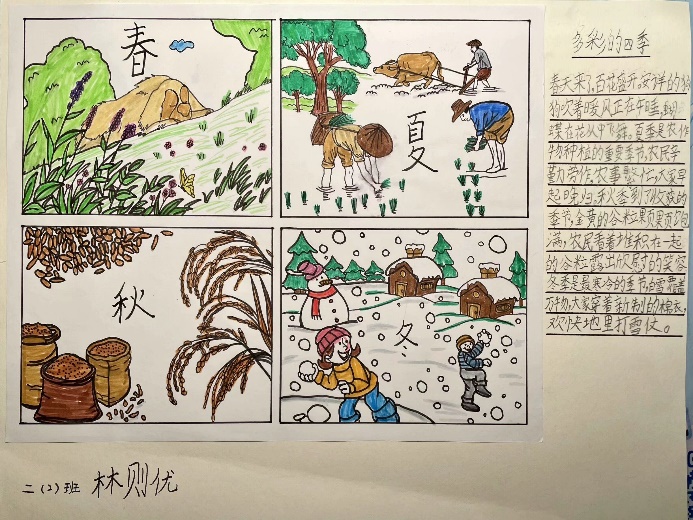 春
夏
秋
冬
多彩的四季
春天来了,百花盛开。安详的狗
狗吹着暖风正在午睡,蝴
蝶在花丛中飞舞。夏季是农作
物种植的重要季节,农民辛
勤劳作。农事繁忙,大家早
起晚归。秋季到了收获的
季节,金黄的谷粒果颗颗饱
满,农民看着堆积在一起
的谷粒露出欣慰的笑容
冬季是最寒冷的季节,白雪覆盖
万物,大家穿着新制的棉衣,
欢快地里打雪仗。
二(2)班 林则优